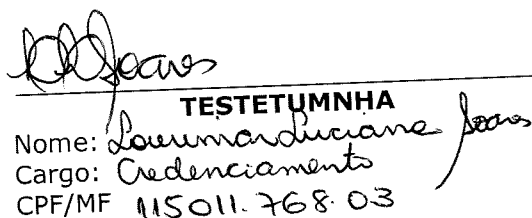 TESTETUMNHA
Nome: Luciana Soares
Cargo: Credenciamento
CPF/MF 115011.768.03